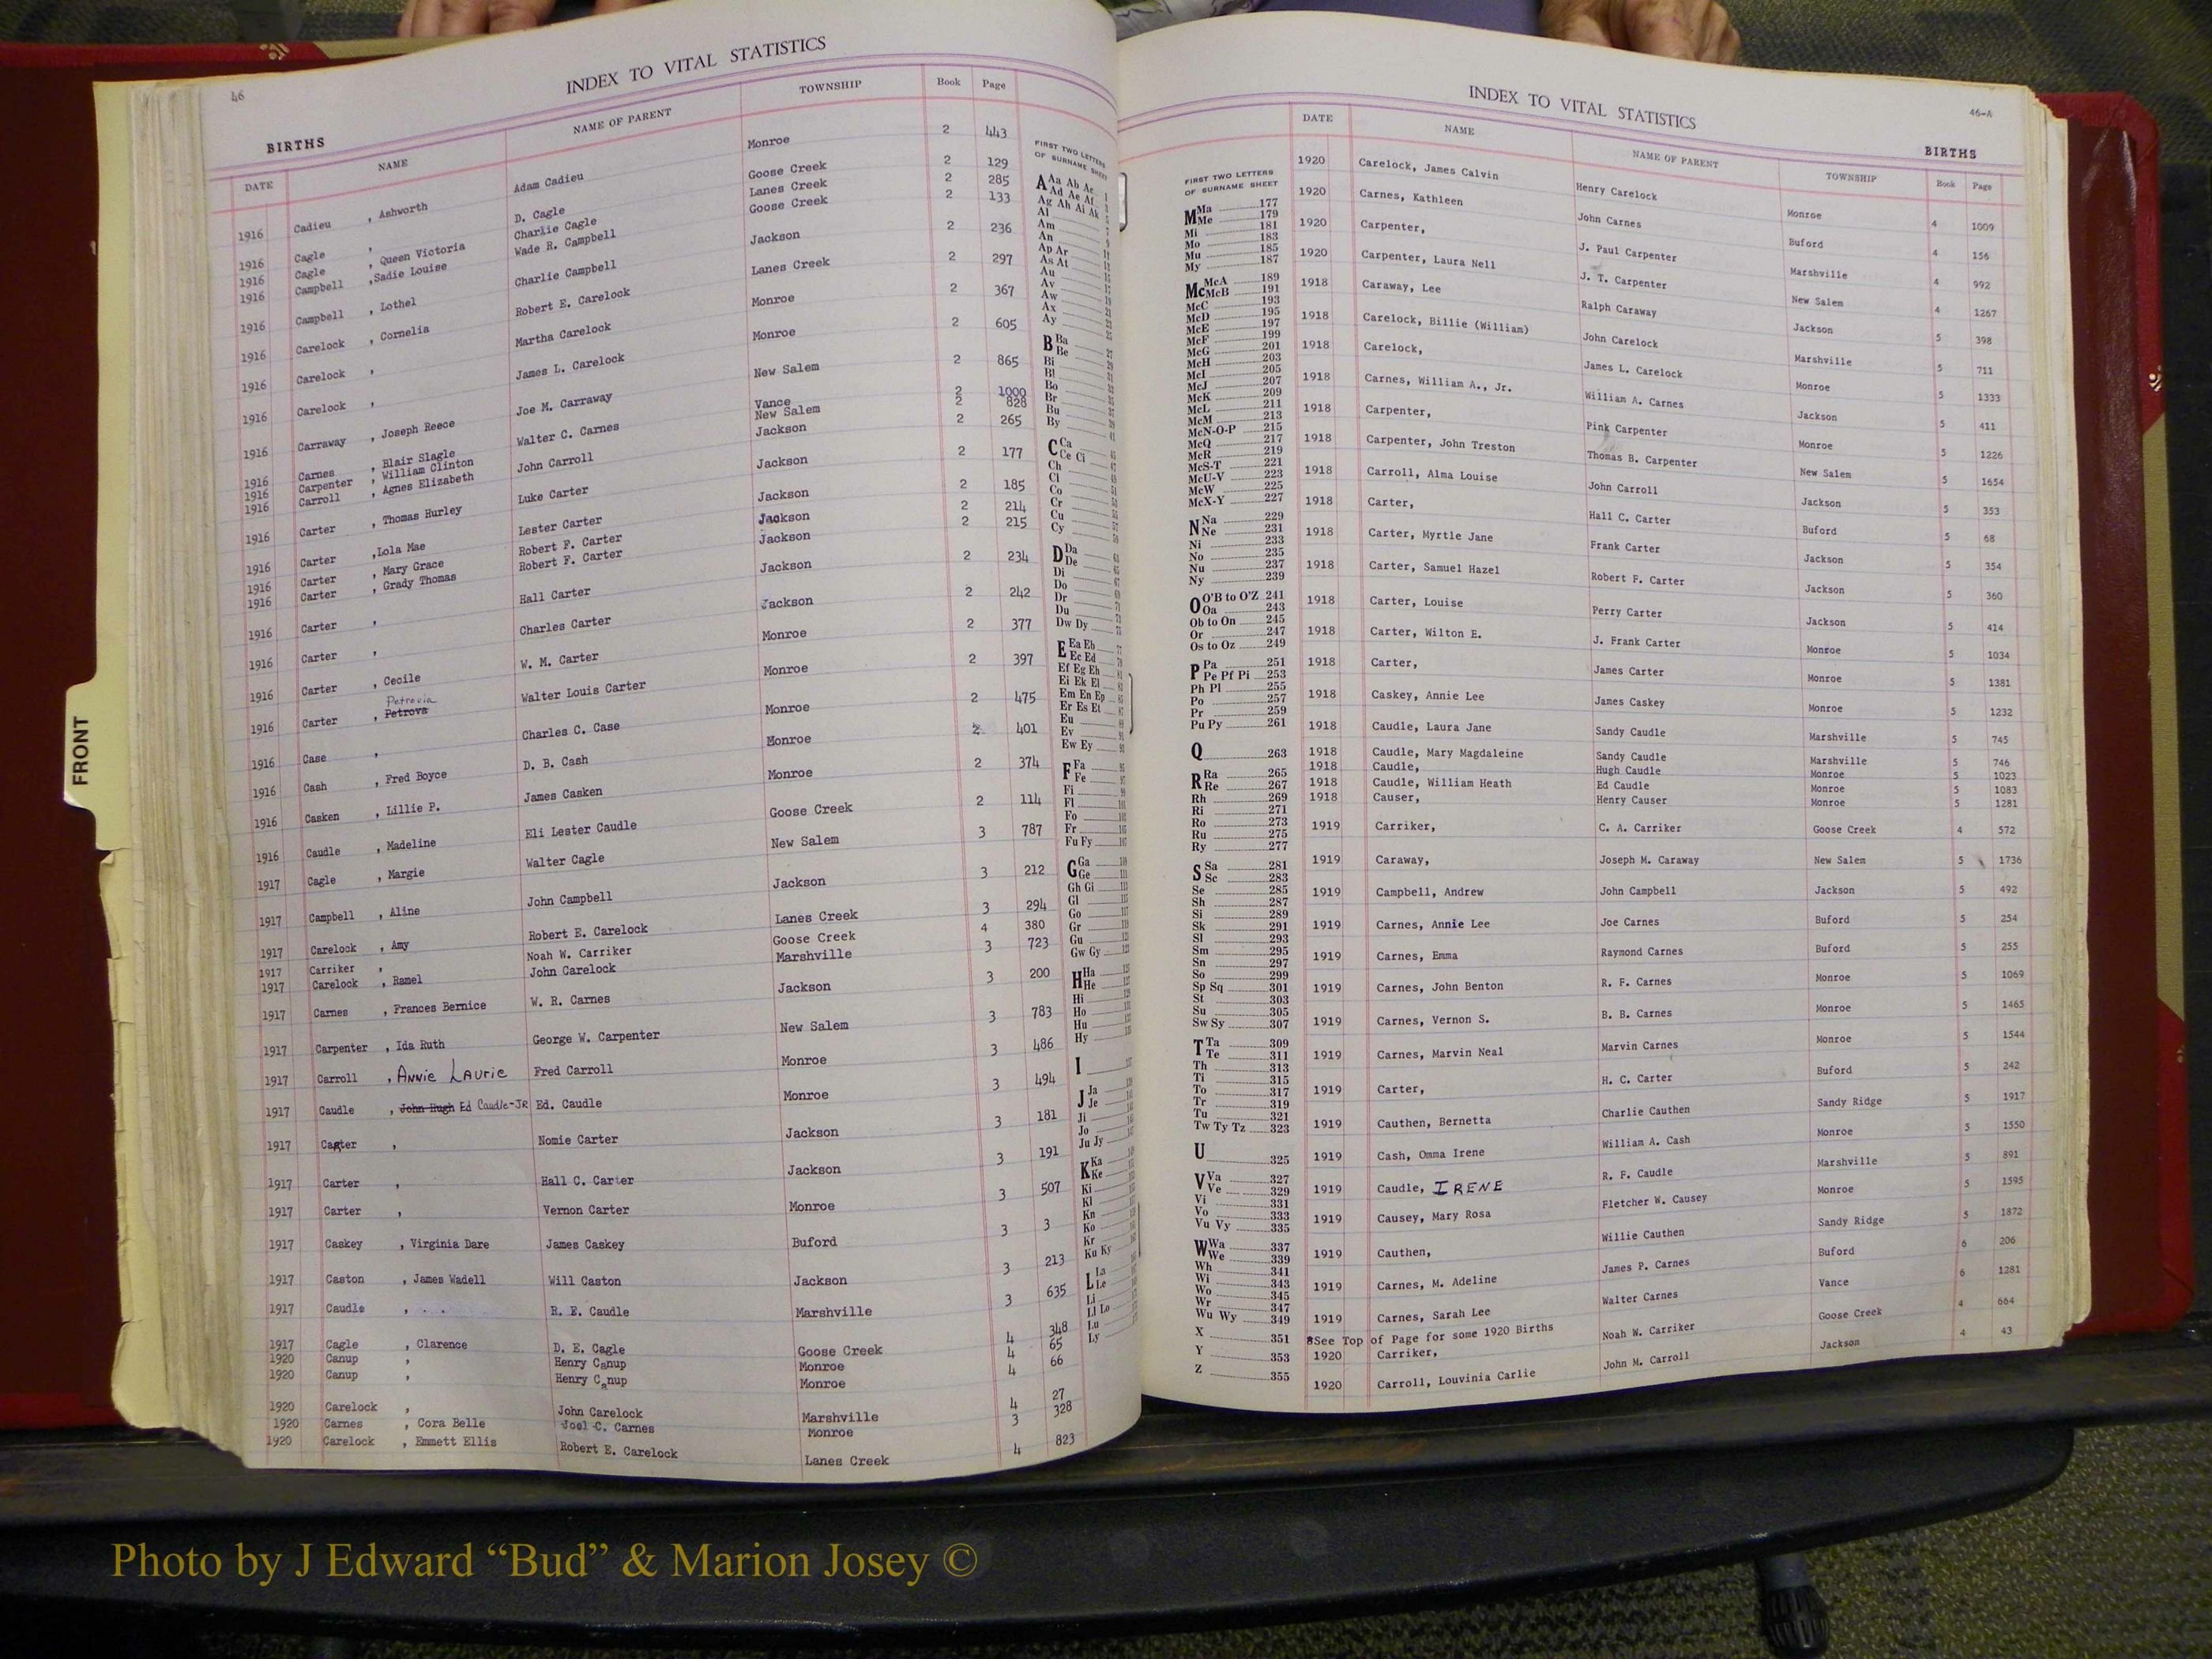 46
INDEX TO VITAL STATISTICS
BIRTHS
DATE NAME NAME OF PARENT TOWNSHIP Book Page
1916 Cadieu , Ashworth Adam Cadieu Monroe 2 443
1916 Cagle , D. Cagle Goose Creek 2 129
1916 Cagle , Queen Victoria Charlie Cagle Lanes Creek 2 285
1916 Campbell ,Sadie Louise Wade R. Campbell Goose Creek 2 133
1916 Campbell , Lothel Charlie Campbell Jackson 2 236
1916 Carelock , Cornelia Robert E. Carelock Lanes Creek 2 297
1916 Carelock , Martha Carelock Monroe 2 367
1916 Carelock , James L. Carelock Monroe 2 605
1916 Carraway , Joseph Reece Joe M. Carraway New Salem 2 865
1916 Carnes , Blair Slagle Walter C. Carnes Vance 2 1000
1916 Carpenter , William Clinton New Salem 2 828
1916 Carroll , Agnes Elizabeth John Carroll Jackson 2 265
1916 Carter , Thomas Hurley Luke Carter Jackson 2 177
1916 Carter ,Lola Mae Lester Carter Jackson 2 185
1916 Carter , Mary Grace Robert F. Carter Jackson 2 214
1916 Carter , Grady Thomas Robert F. Carter Jackson 2 215
1916 Carter , Hall Carter Jackson 2 234
1916 Carter , Charles Carter Jackson 2 242
1916 Carter , Cecile W. M. Carter Monroe 2 377
Petrovia
1916 Carter , Petrova Walter Louis Carter Monroe 2 397
1916 Case , Charles C. Case Monroe 2 475
1916 Cash , Fred Boyce D. B. Cash Monroe 2 401
1916 Casken , Lillie P. James Casken Monroe 2 374
1916 Caudle , Madeline Eli Lester Caudle Goose Creek 2 114
1917 Cagle , Margie Walter Cagle New Salem 3 787
1917 Campbell , Aline John Campbell Jackson 3 212
1917 Carelock , Amy Robert E. Carelock Lanes Creek 3 294
1917 Carriker , Noah W. Carriker Goose Creek 4 380
1917 Carelock , Ramel John Carelock Marshville 3 723
1917 Carnes , Frances Bernice W. R. Carnes Jackson 3 200
1917 Carpenter , Ida Ruth George W. Carpenter New Salem 3 783
1917 Carroll , Annie Laurie Fred Carroll Monroe 3 486
1917 Caudle , John Hugh Ed Caudle-JR Ed. Caudle Monroe 3 494
1917 Carter , Nomie Carter Jackson 3 181
1917 Carter , Hall C. Carter Jackson 3 191
1917 Carter , Vernon Carter Monroe 3 507
1917 Caskey , Virginia Dare James Caskey Buford 3 3
1917 Caston , James Wadell Will Caston Jackson 3 213
1917 Caudle , R. E. Caudle Marshville 3 635
1917 Cagle , Clarence D. E. Cagle Goose Creek 4 348
1920 Canup , Henry Canup Monroe 4 65
1920 Canup , Henry Canup Monroe 4 66
1920 Carelock , John Carelock Marshville 4 27
1920 Carnes , Cora Belle Joel C. Carnes Monroe 3 328
1920 Carelock , Emmett Ellis Robert E. Carelock Lanes Creek 4 823
FIRST TWO LETTERS
OF SURNAME SHEET
A Aa Ab Ac
Ad Ae Af
Ag Ah Ai Ak
Al
Am
An
Ap Ar
As At
Au
Av
Aw
Ax
Ay
B Ba
Be
Bi
Bl
Bo
Br
Bu
By
C Ca
Ce Ci
Ch
Cl
Co
Cr
Cu
Cy
D Da
De
Di
Do
Dr
Du
Dw Dy
E Ea Eb
Ec Ed
Ef Eg Eh
Ei Ek El
Em En Ep
Er Es Et
Eu
Ev
Ew Ey
F Fa
Fe
Fi
Fl
Fo
Fr
Fu Fy
G Ga
Ge
Gh Gi
Gl
Go
Gr
Gu
Gw Gy
H Ha
He
Hi
Ho
Hu
Hy
I
J Ja
Je
Ji
Jo
Ju Jy
K Ka
Ke
Ki
Kl
Kn
Ko
Kr
Ku Ky
L La
Le
Li
Ll Lo
Lu
Ly
FRONT
INDEX TO VITAL STATISTICS
46-A
BIRTHS
FIRST TWO LETTERS
OF SURNAME SHEET
M Ma 177
Me 179
Mi 181
Mo 183
Mu 185
My 187
Mc McA 189
McB 191
McC 193
McD 195
McE 197
McF 199
McG 201
McH 203
McI 205
McJ 207
McK 209
McL 211
McM 213
McN-O-P 215
McQ 217
McR 219
McS-T 221
McU-V 223
McW 225
McX-Y 227
N Na 229
Ne 231
Ni 233
No 235
Nu 237
Ny 239
O O'B to O'Z 241
Oa 243
Ob to On 245
Or 247
Os to Oz 249
P Pa 251
Pe Pf Pi 253
Ph Pl 255
Po 257
Pr 259
Pu Py 261
Q 263
R Ra 265
Re 267
Rh 269
Ri 271
Ro 273
Ru 275
Ry 277
S Sa 281
Sc 283
Se 285
Sh 287
Si 289
Sk 291
Sl 293
Sm 295
Sn 297
So 299
Sp Sq 301
St 303
Su 305
Sw Sy 307
T Ta 309
Te 311
Th 313
Ti 315
To 317
Tr 319
Tu 321
Tw Ty Tz 323
U 325
V Va 327
Ve 329
Vi 331
Vo 333
Vu Vy 335
W Wa 337
We 339
Wh 341
Wi 343
Wo 345
Wr 347
Wu Wy 349
X 351
Y 353
Z 355
DATE NAME NAME OF PARENT TOWNSHIP Book Page
1920 Carelock, James Calvin Henry Carelock Monroe 4 1009
1920 Carnes, Kathleen John Carnes Buford 4 156
1920 Carpenter, J. Paul Carpenter Marshville 4 992
1920 Carpenter, Laura Nell J. T. Carpenter New Salem 4 1267
1918 Caraway, Lee Ralph Caraway Jackson 5 398
1918 Carelock, Billie (William) John Carelock Marshville 5 711
1918 Carelock, James L. Carelock Monroe 5 1333
1918 Carnes, William A., Jr. William A. Carnes Jackson 5 411
1918 Carpenter, Pink Carpenter Monroe 5 1226
1918 Carpenter, John Treston Thomas B. Carpenter New Salem 5 1654
1918 Carroll, Alma Louise John Carroll Jackson 5 353
1918 Carter, Hall C. Carter Buford 5 68
1918 Carter, Myrtle Jane Frank Carter Jackson 5 354
1918 Carter, Samuel Hazel Robert F. Carter Jackson 5 360
1918 Carter, Louise Perry Carter Jackson 5 414
1918 Carter, Wilton E. J. Frank Carter Monroe 5 1034
1918 Carter, James Carter Monroe 5 1381
1918 Caskey, Annie Lee James Caskey Monroe 5 1232
1918 Caudle, Laura Jane Sandy Caudle Marshville 5 745
1918 Caudle, Mary Magdaleine Sandy Caudle Marshville 5 746
1918 Caudle, Hugh Caudle Monroe 5 1023
1918 Caudle, William Heath Ed Caudle Monroe 5 1083
1918 Causer, Henry Causer Monroe 5 1281
1919 Carriker, C. A. Carriker Goose Creek 4 572
1919 Caraway, Joseph M. Caraway New Salem 5 1736
1919 Campbell, Andrew John Campbell Jackson 5 492
1919 Carnes, Annie Lee Joe Carnes Buford 5 254
1919 Carnes, Emma Raymond Carnes Buford 5 255
1919 Carnes, John Benton R. F. Carnes Monroe 5 1069
1919 Carnes, Vernon S. B. B. Carnes Monroe 5 1465
1919 Carnes, Marvin Neal Marvin Carnes Monroe 5 1544
1919 Carter, H. C. Carter Buford 5 242
1919 Cauthen, Bernetta Charlie Cauthen Sandy Ridge 5 1917
1919 Cash, Omma Irene William A. Cash Monroe 5 1550
1919 Caudle, IRENE R. F. Caudle Marshville 5 891
1919 Causey, Mary Rosa Fletcher W. Causey Monroe 5 1595
1919 Cauthen, Willie Cauthen Sandy Ridge 5 1872
1919 Carnes, M. Adeline James P. Carnes Buford 6 206
1919 Carnes, Sarah Lee Walter Carnes Vance 6 1281
*See Top of Page for some 1920 Births
1920 Carriker, Noah W. Carriker Goose Creek 4 664
1920 Carroll, Louvinia Carlie John M. Carroll Jackson 4 43
Photo by J Edward “Bud” & Marion Josey ©